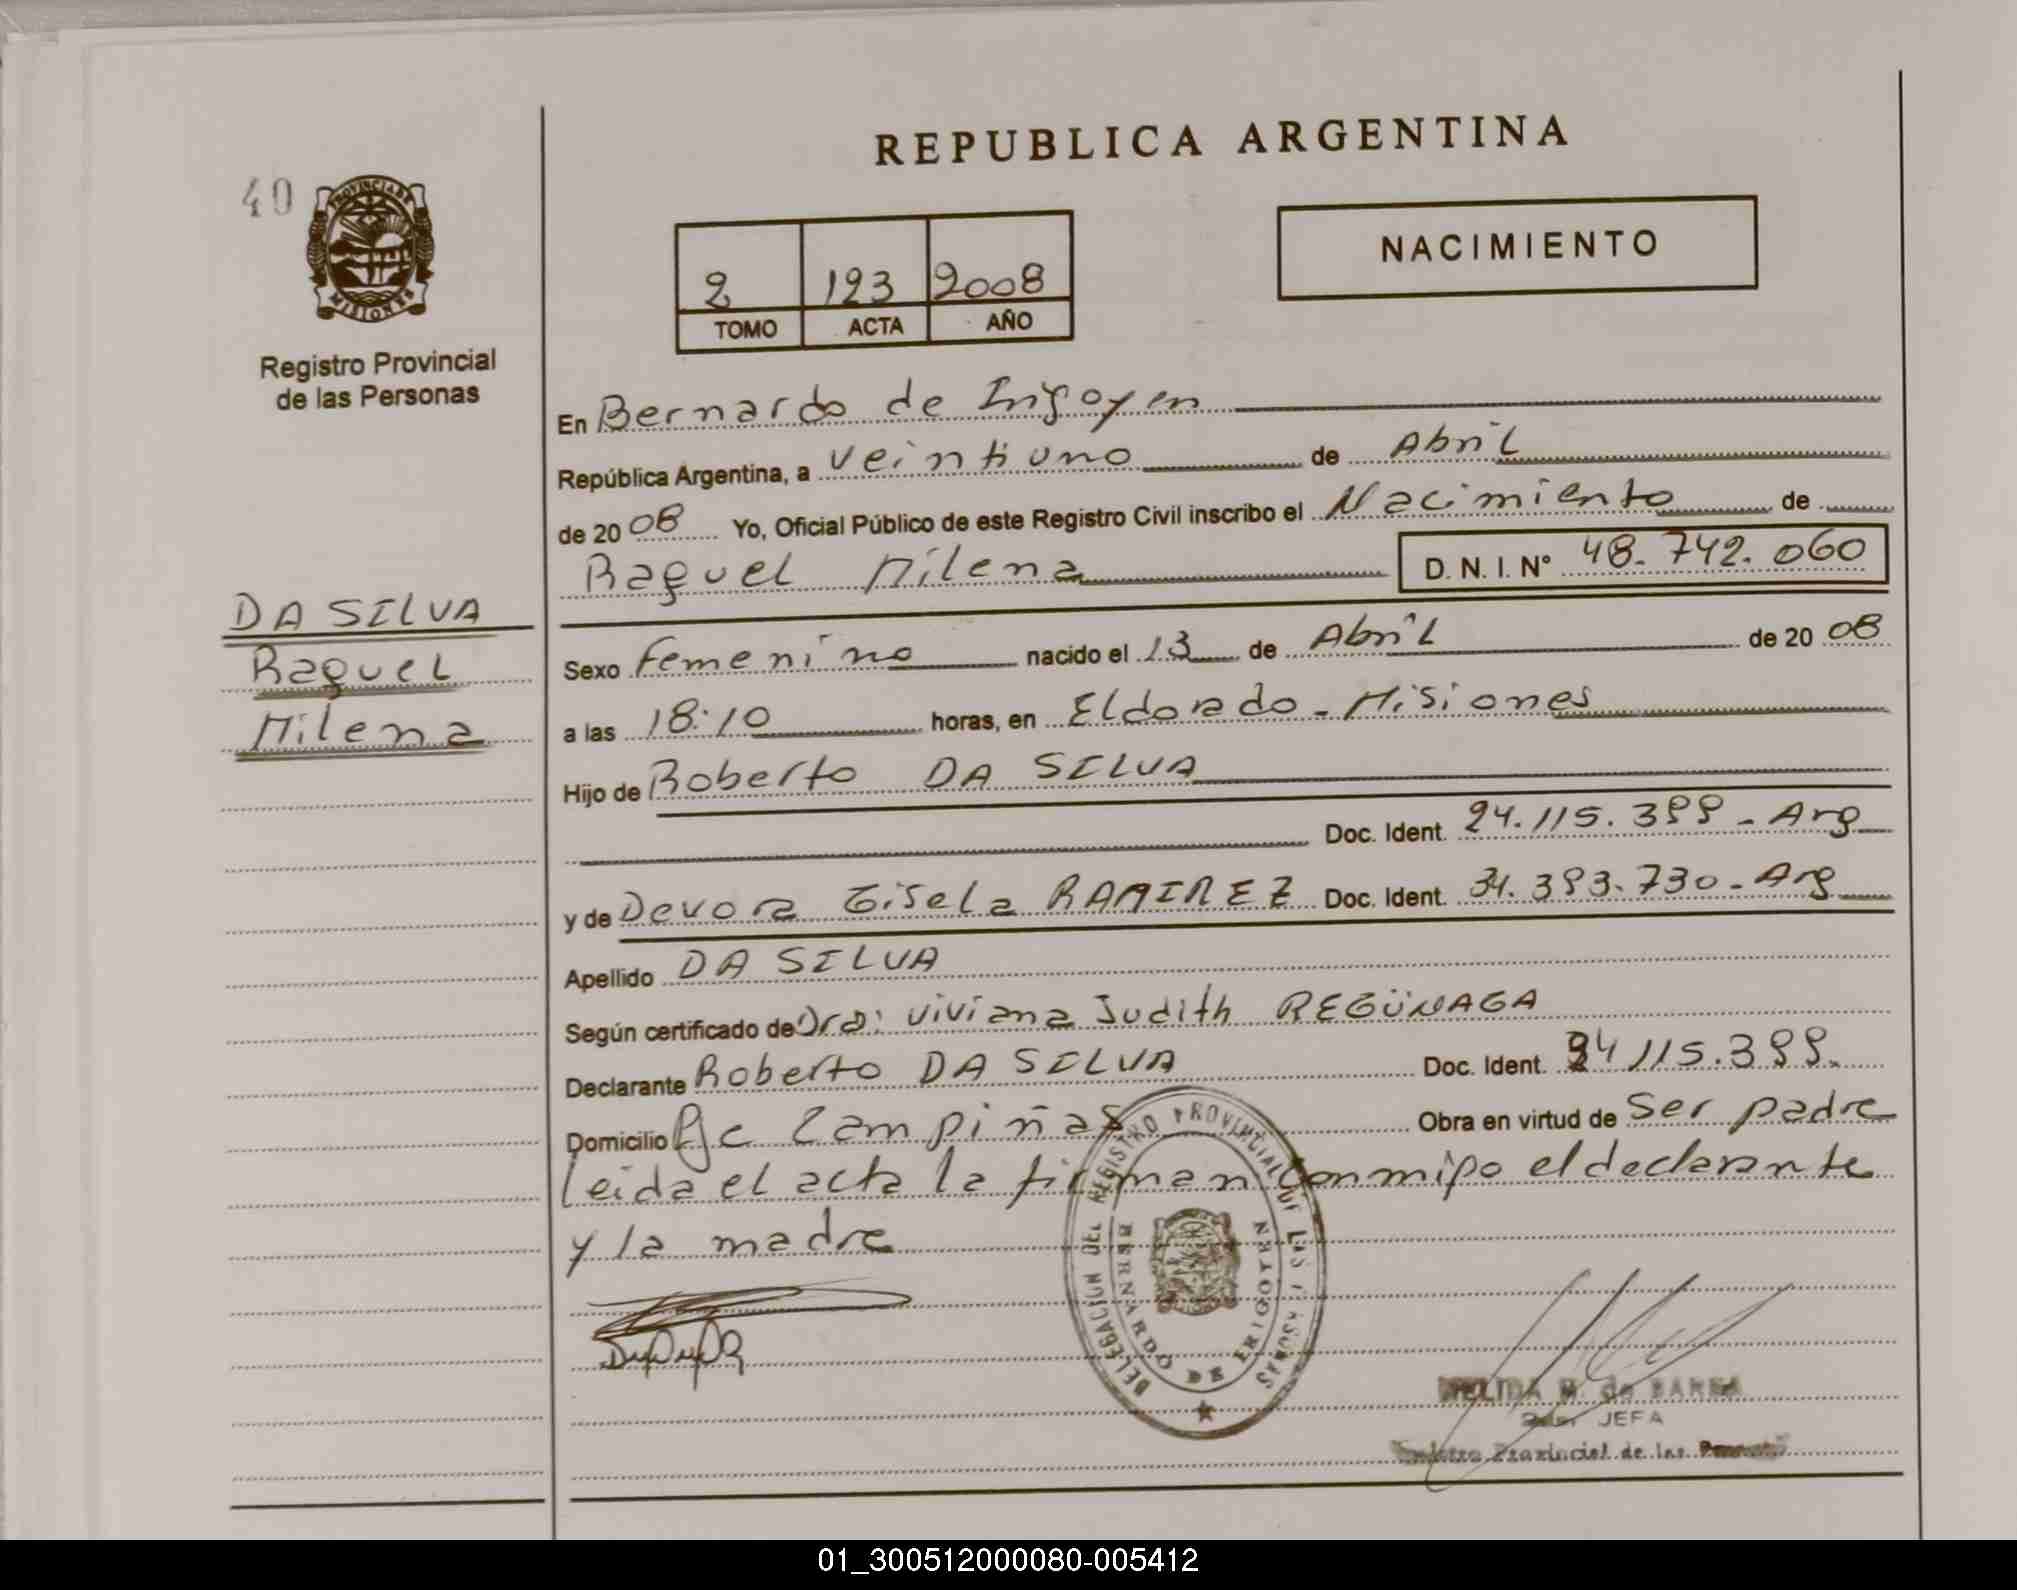 REPUBLICA ARGENTINA
40
PROVINCIA DE
MISIONES
Registro Provincial
de las Personas
2 123 2008
TOMO ACTA AÑO
NACIMIENTO
En Bernardo de Irigoyen
República Argentina, a veintiuno de Abril
de 2008 Yo, Oficial Público de este Registro Civil inscribo el Nacimiento de
Raquel Milena D. N. I. N° 48.742.060
DA SILVA
Raquel
Milena
Sexo Femenino nacido el 13 de Abril de 2008
a las 18:10 horas, en Eldorado - Misiones
Hijo de Roberto DA SILVA
Doc. Ident. 24.115.399 - Arg
y de Devora Gisela RAMIREZ Doc. Ident. 34.393.730 - Arg
Apellido DA SILVA
Según certificado de Dra: Viviana Judith REGÜNAGA
Declarante Roberto DA SILVA Doc. Ident. 24 115.399.
Domicilio Pje Campiñas Obra en virtud de Ser padre
leida el acta la firman conmigo el declarante
y la madre
DELEGACION DEL REGISTRO PROVINCIAL DE LAS PERSONAS
BERNARDO DE IRIGOYEN
M. de
JEFA
Provincial de las
01_300512000080-005412